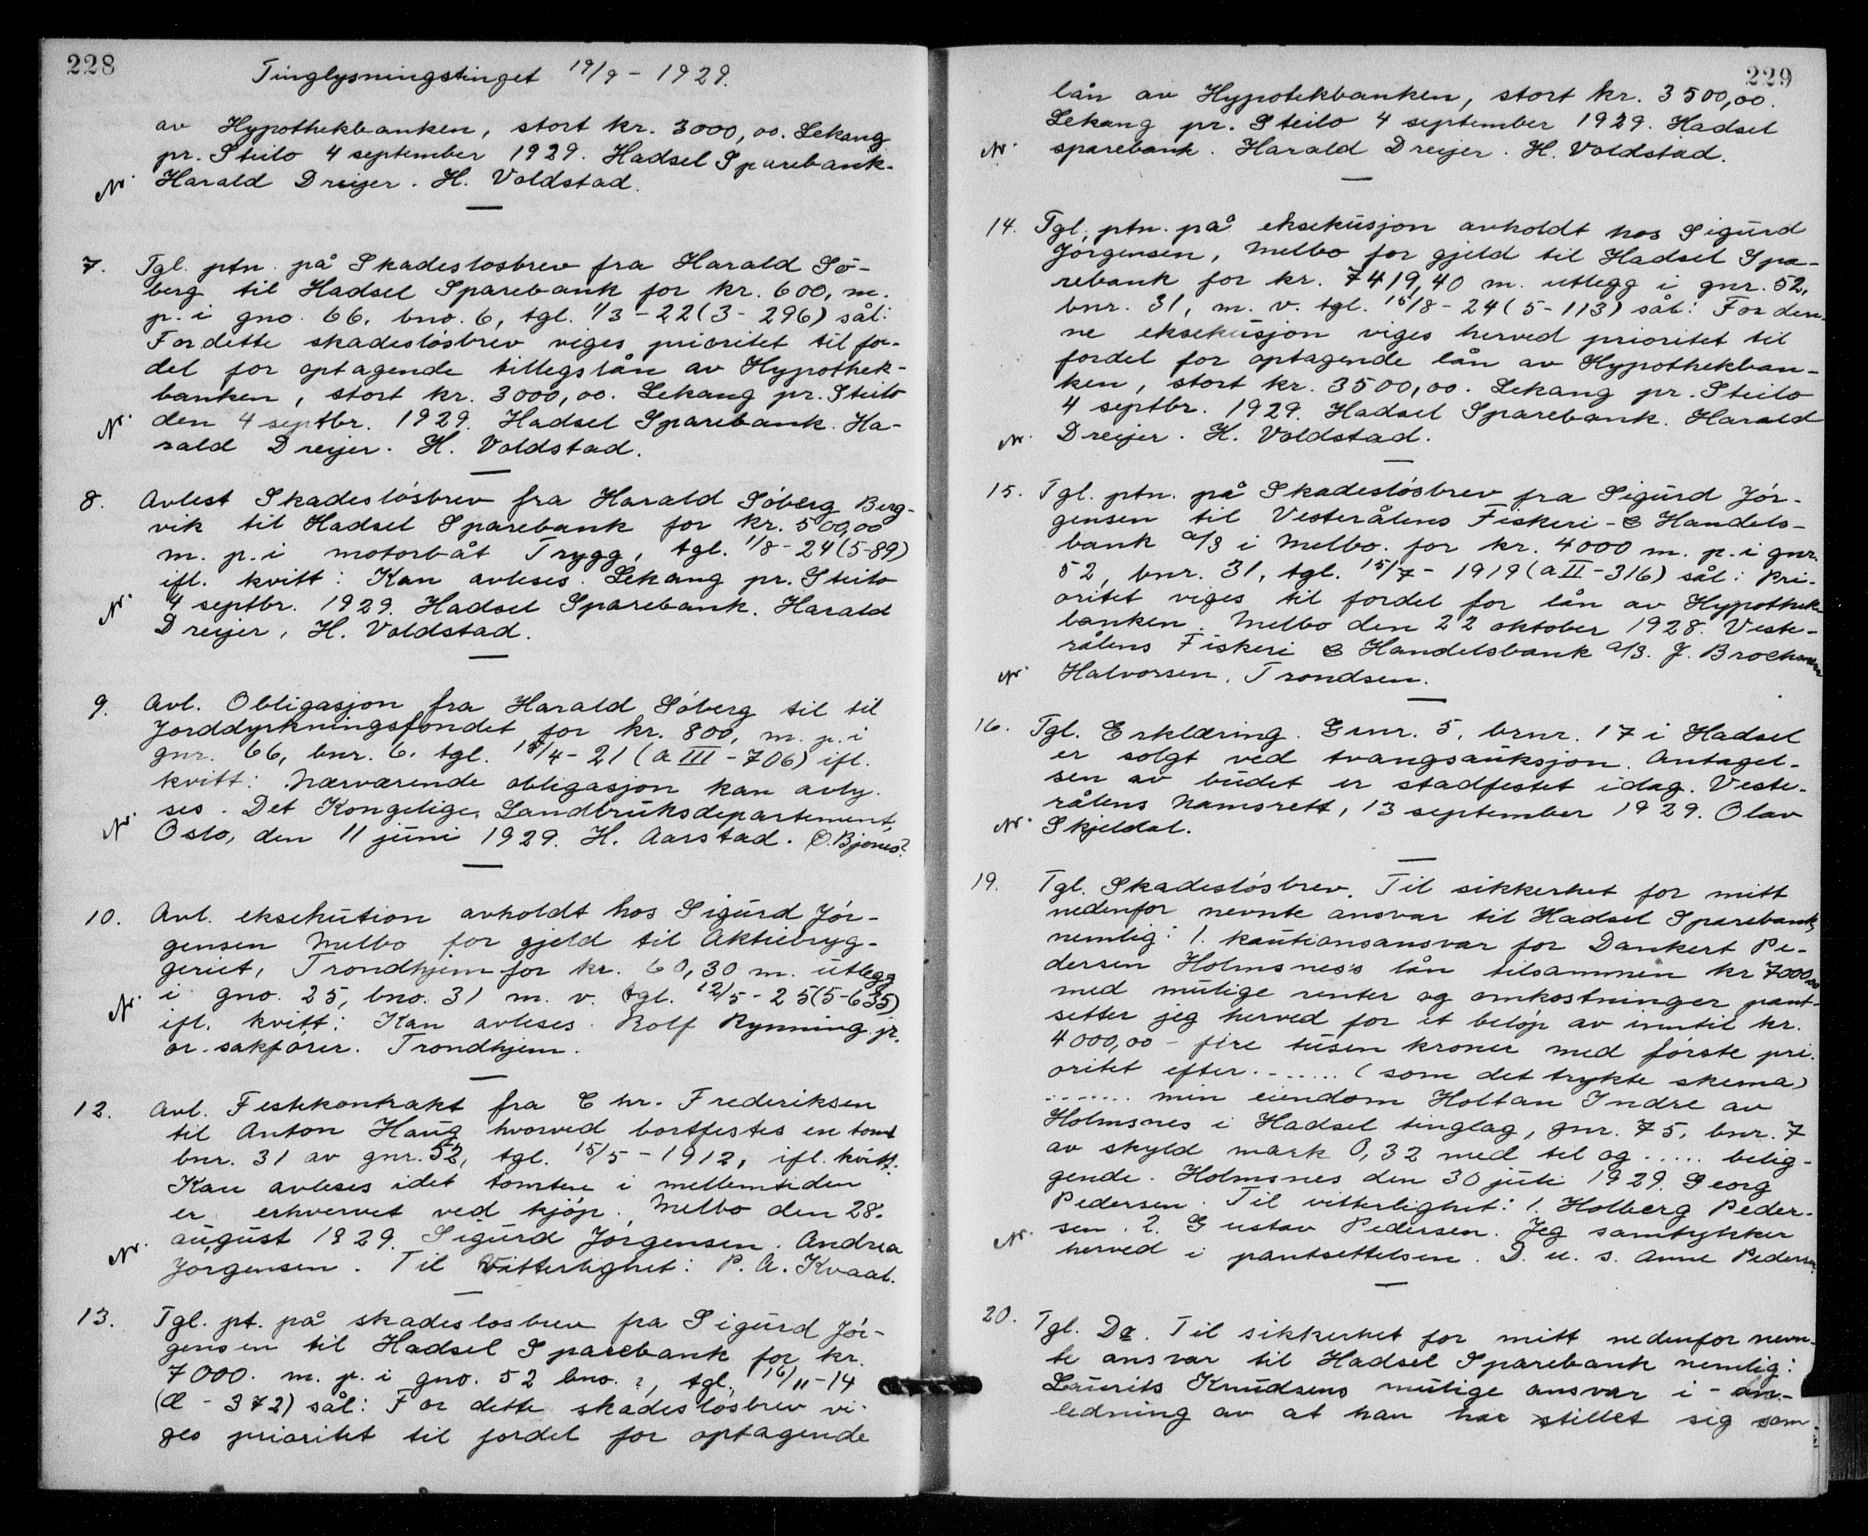 228
Tinglysningstinget 19/9 - 1929.
av Hypothekbanken, stort kr. 3000,00. Lekang
pr. Steilo 4 september 1929. Hadsel Sparebank.
Nr. Harald Dreyer. H. Voldstad.
7. Tgl. ptn. på Skadesløsbrev fra Harald Sö-
berg til Hadsel Sparebank for kr. 600, m.
p. i gno. 66, bno. 6, tgl. 1/3 - 22 (3 - 296) sål:
For dette skadesløsbrev viges prioritet til for-
del for optagende tillegslån av Hypothek-
banken, stort kr. 3000,00. Lekang pr. Steilo
Nr. den 4 septbr. 1929. Hadsel Sparebank. Ha-
rald Dreyer. H. Voldstad.
8. Avlest Skadesløsbrev fra Harald Söberg Berg-
vik til Hadsel Sparebank for kr. 500,00
m. p. i motorbåt Trygg, tgl. 1/8 - 24 (5-89)
ifl. kvitt: Kan avleses. Lekang pr. Steilo
Nr. 4 septbr. 1929. Hadsel Sparebank. Harald
Dreyer, H. Voldstad.
9. Avl. Obligasjon fra Harald Söberg til til
Jorddyrkningsfondet for kr. 800, m. p. i
gnr. 66, bnr. 6. tgl. 15/4 - 21 (a III - 706) ifl.
kvitt: Nærværende obligasjon kan avly-
ses. Det Kongelige Landbruksdepartement,
Nr. Oslo, den 11 juni 1929. H. Aarstad. O. Bjones?
10. Avl. eksekution avholdt hos Sigurd Jör-
gensen Melbo for gjeld til Aktiebryg-
geriet, Trondhjem for kr. 60,30 m. utlegg
Nr. i gno. 25, bno. 31 m. v. tgl. 12/5 - 25 (5-635)
ifl. kvitt: Kan avleses. Rolf Rynning jr.
or. sakförer. Trondhjem.
12. Avl. Festekontrakt fra Chr. Frederiksen
til Anton Haug hvorved bortfestes en tomt
bnr. 31 av gnr. 52, tgl. 15/5 - 1912, ifl. kvitt:
Kan avleses idet tomten i mellemtiden
er erhvervet ved kjöp. Melbo den 28.
Nr. august 1929. Sigurd Jörgensen. Andrea
Jörgensen. Til Vitterlighet: P. A. Kvaal.
13. Tgl. pt. på skadesløsbrev fra Sigurd Jör-
gensen til Hadsel Sparebank for kr.
7000. m. p. i gno. 52 bno. ?, tgl. 16/11 - 14
(Æ - 372) sål: For dette skadesløsbrev vi-
ges prioritet til fordel for optagende
229
lån av Hypotekbanken, stort kr. 3500,00.
Lekang pr. Steilo 4 september 1929. Hadsel
Nr. sparebank. Harald Dreyer. H. Voldstad.
14. Tgl. ptn. på eksekusjon avholdt hos Sigurd
Jörgensen, Melbo for gjeld til Hadsel Spa-
rebank for kr. 7419,40 m. utlegg i gnr. 52,
bnr. 31, m. v. tgl. 15/8 - 24 (5 - 113) sål: For den-
ne eksekusjon viges herved prioritet til
fordel for optagende lån av Hypothekban-
ken, stort kr. 3500,00. Lekang pr. Steilo
4 septbr. 1929. Hadsel Sparebank. Harald
Nr. Dreyer. H. Voldstad.
15. Tgl. ptn. på Skadesløsbrev fra Sigurd Jör-
gensen til Vesterålens Fiskeri- & Handels-
bank a/s i Melbo. for kr. 4000 m. p. i gnr.
52, bnr. 31, tgl. 15/7 - 1919 (a II - 316) sål: Pri-
oritet viges til fordel for lån av Hypothek-
banken. Melbo den 22 oktober 1928. Veste-
rålens Fiskeri & Handelsbank a/s. J.
Nr. Halvorsen. Trondsen.
16. Tgl. Erklæring. Gnr. 5, brnr. 17 i Hadsel
er solgt ved tvangsauksjon. Antagel-
sen av budet er stadfestet idag. Veste-
rålens Namsrett, 13 september 1929. Olav
Nr. Skjeldal.
19. Tgl. Skadesløsbrev. Til sikkerhet for mitt
nedenfor nevnte ansvar til Hadsel Sparebank,
nemlig: 1. kautionsansvar for Dankert Pe-
dersen Holmsnes's lån tilsammen kr 7000,00
med mulige renter og omkostninger pant-
setter jeg herved for et belöp av inntil kr.
4000,00 - fire tusen kroner med förste pri-
oritet efter ....... (som det trykte skema)
....... min eiendom Holtan Indre av
Holmsnes i Hadsel tinglag, gnr. 75, bnr. 7
av skyld mark 0,32 med til og ..... belig-
gende. Holmsnes den 30 juli 1929. Georg
Pedersen. Til vitterlighet: 1. Holberg Peder-
sen. 2. Gustav Pedersen. Jeg samtykker
Nr. herved i pantsettelsen. D. u. s. Anne Pedersen.
20. Tgl. Do. Til sikkerhet for mitt nedenfor nevn-
te ansvar til Hadsel Sparebank nemlig:
Laurits Knudsens mulige ansvar i - an-
ledning av at han har stillet sig som